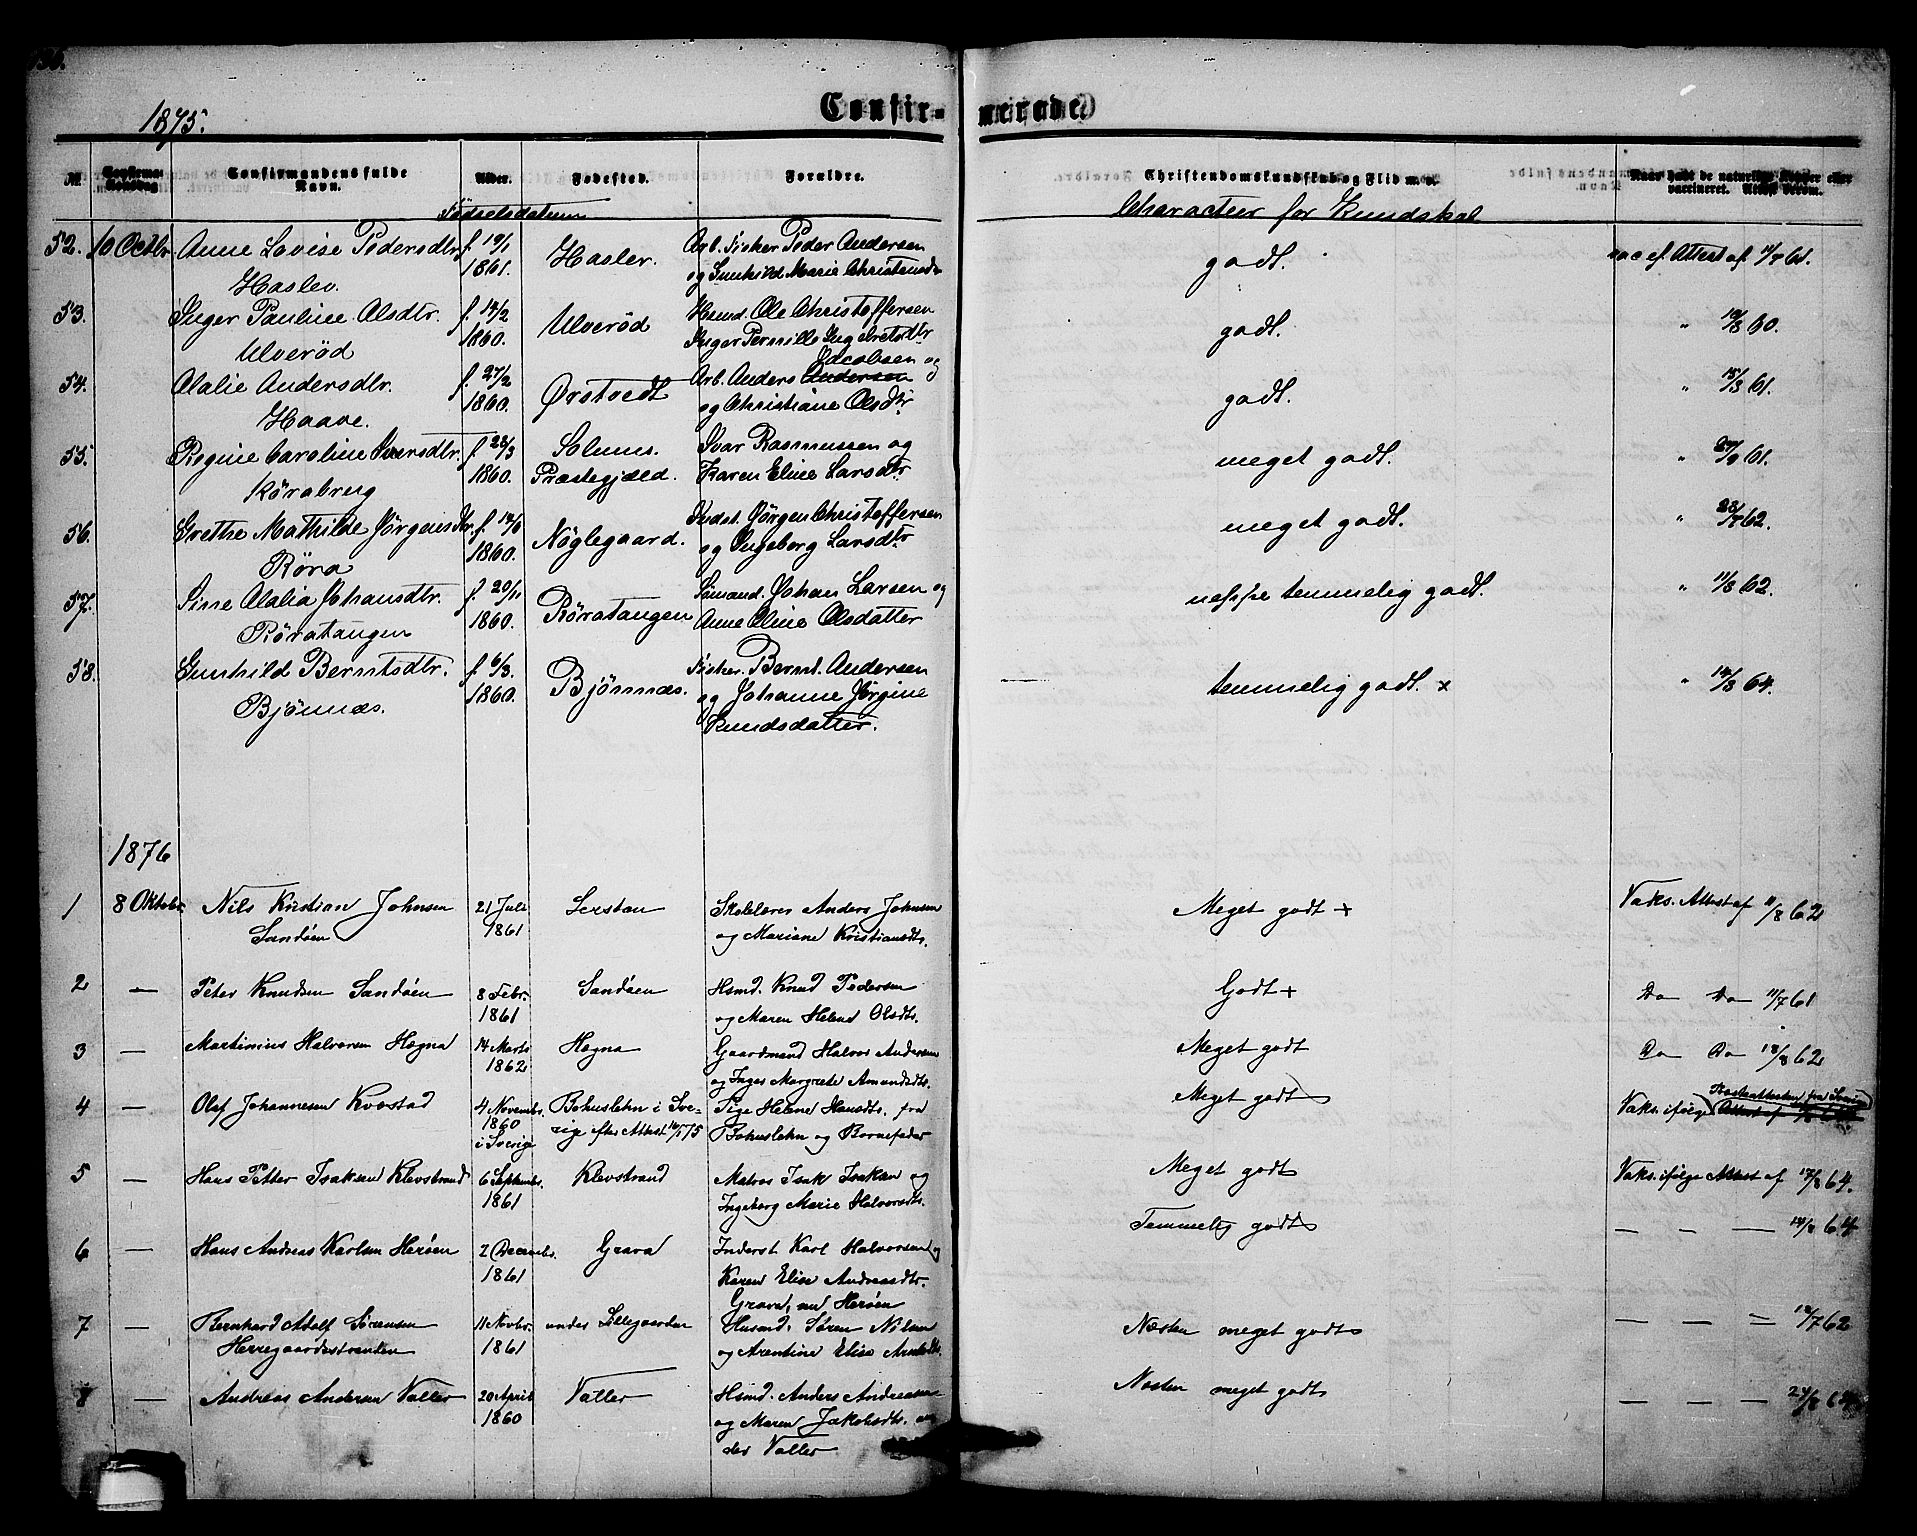 1875.
Confir-
merade
No.
Confirma-
tionsdag
Confirmandens fulde
Navn.
Alder.
Fødested.
Forældre.
Christendomskundskab og Flid m. v.
Naar havt de naturlige Kopper eller
vaccineret. Attest derom.
Fødselsdatum
Characteer for Kundskab
52. 10 Octbr Anne Lovise Pedersdtr. f. 19/1 Hasler. Arb. Fisker Peder Andersen godt. vac. ef. Attest af 11/7 61.
Hasler. 1861. og Gunhild Marie Christensdtr
53. Inger Pauline Olsdtr. f. 14/2 Ulverød Husmd. Ole Christoffersen godt. " 19/8 60.
Ulverød 1860. Inger Pernille Ingebretsdtr
54. Olalie Andersdtr. f. 27/2 Ørstvedt Arb. Anders Andersen Jacobsen og godt. " 15/8 61.
Haave. 1860. og Christiane Olsdtr
55. Regine Caroline Svarsdtr. f. 28/3 Solums Svar Rasmussen og meget godt. " 27/9 61.
Rörabrug 1860. Præstegjæld. Karen Eline Larsdtr
56. Grethe Mathilde Jörgensdtr. f. Nöglegaard. Indst. Jörgen Christoffersen meget godt. " 28/7 62.
Röra 1860. og Ingeborg Larsdtr
57. Sine Olalia Johansdtr. f. 20/11 Röratangen Sømand. Johan Larsen og neppe temmelig godt. " 11/8 62.
Röratangen 1860. Anne Oline Olsdatter
58. Gunhild Berntsdtr. f. 6/3 Bjönnæs. Fisker. Bernt Andersen temmelig godt. x " 14/8 64.
Bjönnæs. 1860. og Johanne Jörgine
Knudsdatter.
1876
1 8 Oktobr. Nils Kristian Johnsen 21 Juli Skolelærer Anders Johnsen Meget godt + Vaks. Attest af 11/8 62
Sandöen 1861 og Mariane Kristiansdtr.
2 — Peter Knudsen Sandöen 8 Febr. Sandöen Hsmd. Knud Pedersen Godt + Do Do 11/7 61
1861 og Maren Helene Olsdtr.
3 — Martinius Halvorsen Høgna 14 Marts Høgna Gaardmand Halvor Andersen Meget godt Do Do 18/8 62
1862 og Inger Margrete Amundsdtr.
4 — Olaf Johannesen Kvæstad 4 Novembr. Bohuslehn i Sve- Pige Helene Hansdtr. fra Meget godt Vaks. ifølge Attest af
1860 rige efter Attest 75 Bohuslehn og Barnefader
i Sverige
5 — Hans Petter Isaksen Klevstrand 6 Septembr. Klevstrand Matros Isak Isaksen og Meget godt Vaks. ifølge Attest af 17/8 64.
1861 Ingeborg Marie Halvorsdtr.
6 — Hans Andreas Karlsen Herøen 2 Decembr. Grava Inderst Karl Halvorsen og Temmelig godt — — — 14/8 64
1861 Karen Elise Andreasdtr.
Grava, nu Herøen
7 — Bernhard Adolf Sörensen 11 Novbr. under Lillegaarden Husmd. Sören Nilsen Næsten meget godt — — — 18/7 62
Herregaardsstranden 1861 og Arentine Elise
8 — Andreas Andersen Valler 20 April Valler Hsmd. Anders Andreasen Næsten meget godt — — — 24/8 64
1860 og Maren Jakobsdtr. un
der Valler